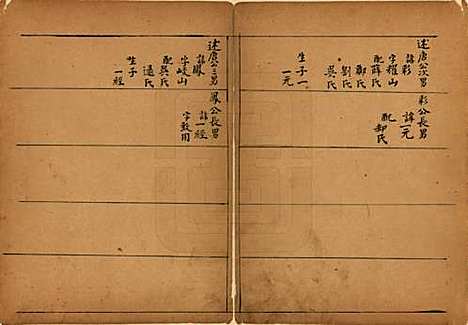 述唐公次男
諱彩
字耀山
配薛氏
鄭氏
劉氏
吳氏
生子一
一元
彩公長男
諱一元
配
述唐公三男
諱鳳
字岐山
配吳氏
氏
生子
一經
鳳公長男
諱一經
字致用